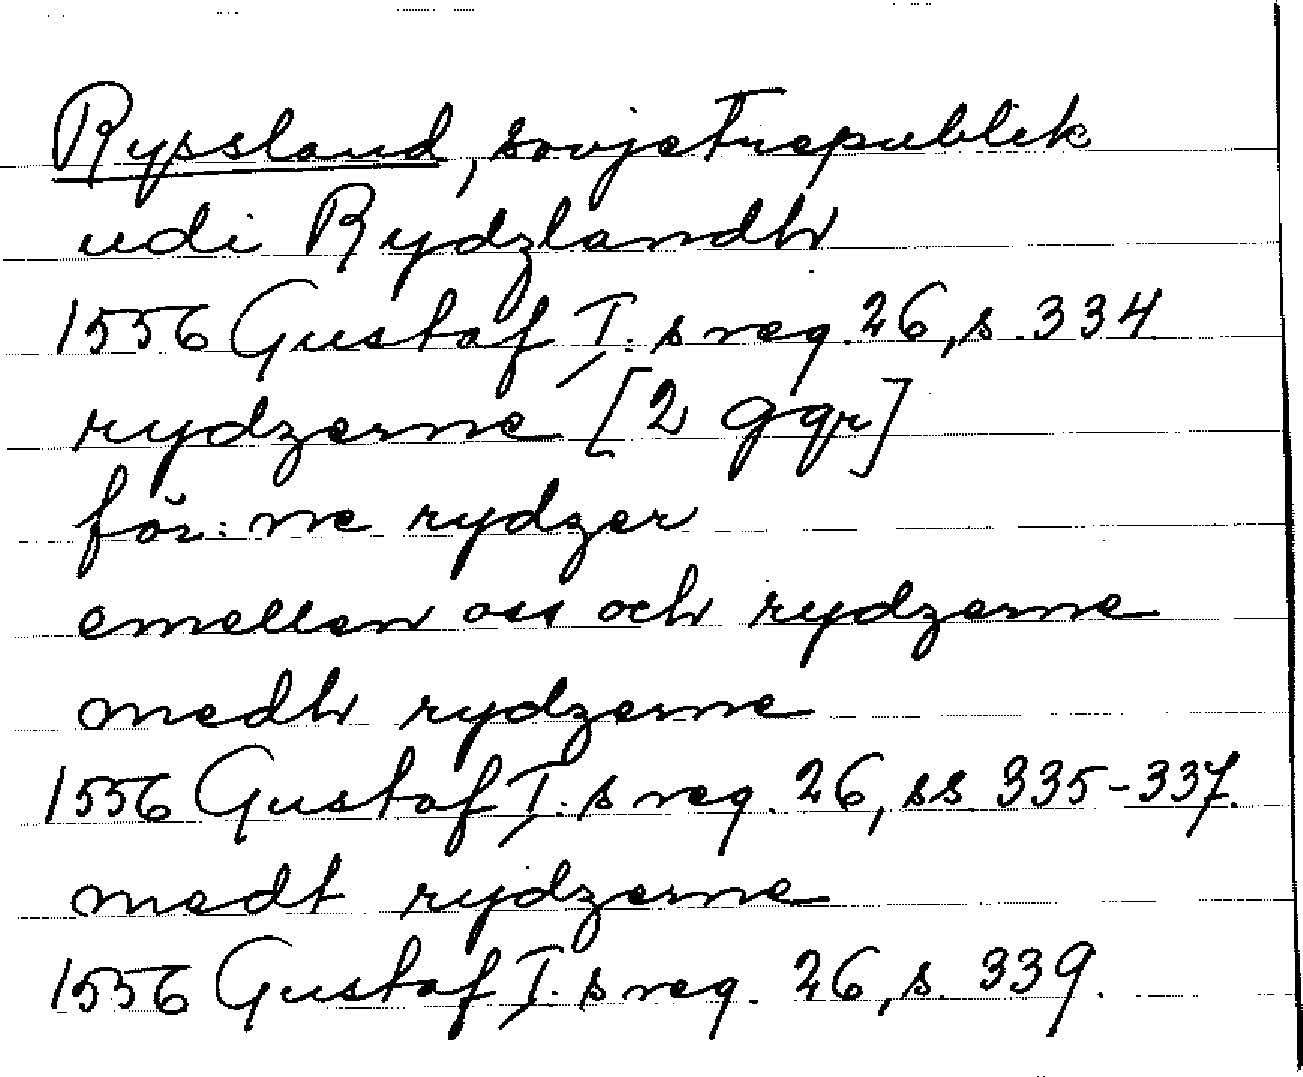 Ryssland, sovjetrepublik
udi Rydzlandh
1556 Gustaf I:s reg. 26, s. 334
rydzerne [2 ggr]
för: ne rydzer
emellan oss och rydzerne
medh rydzerne
1556 Gustaf I:s reg. 26, ss 335-337.
medt rydzerne
1556 Gustaf I:s reg. 26, s. 339.